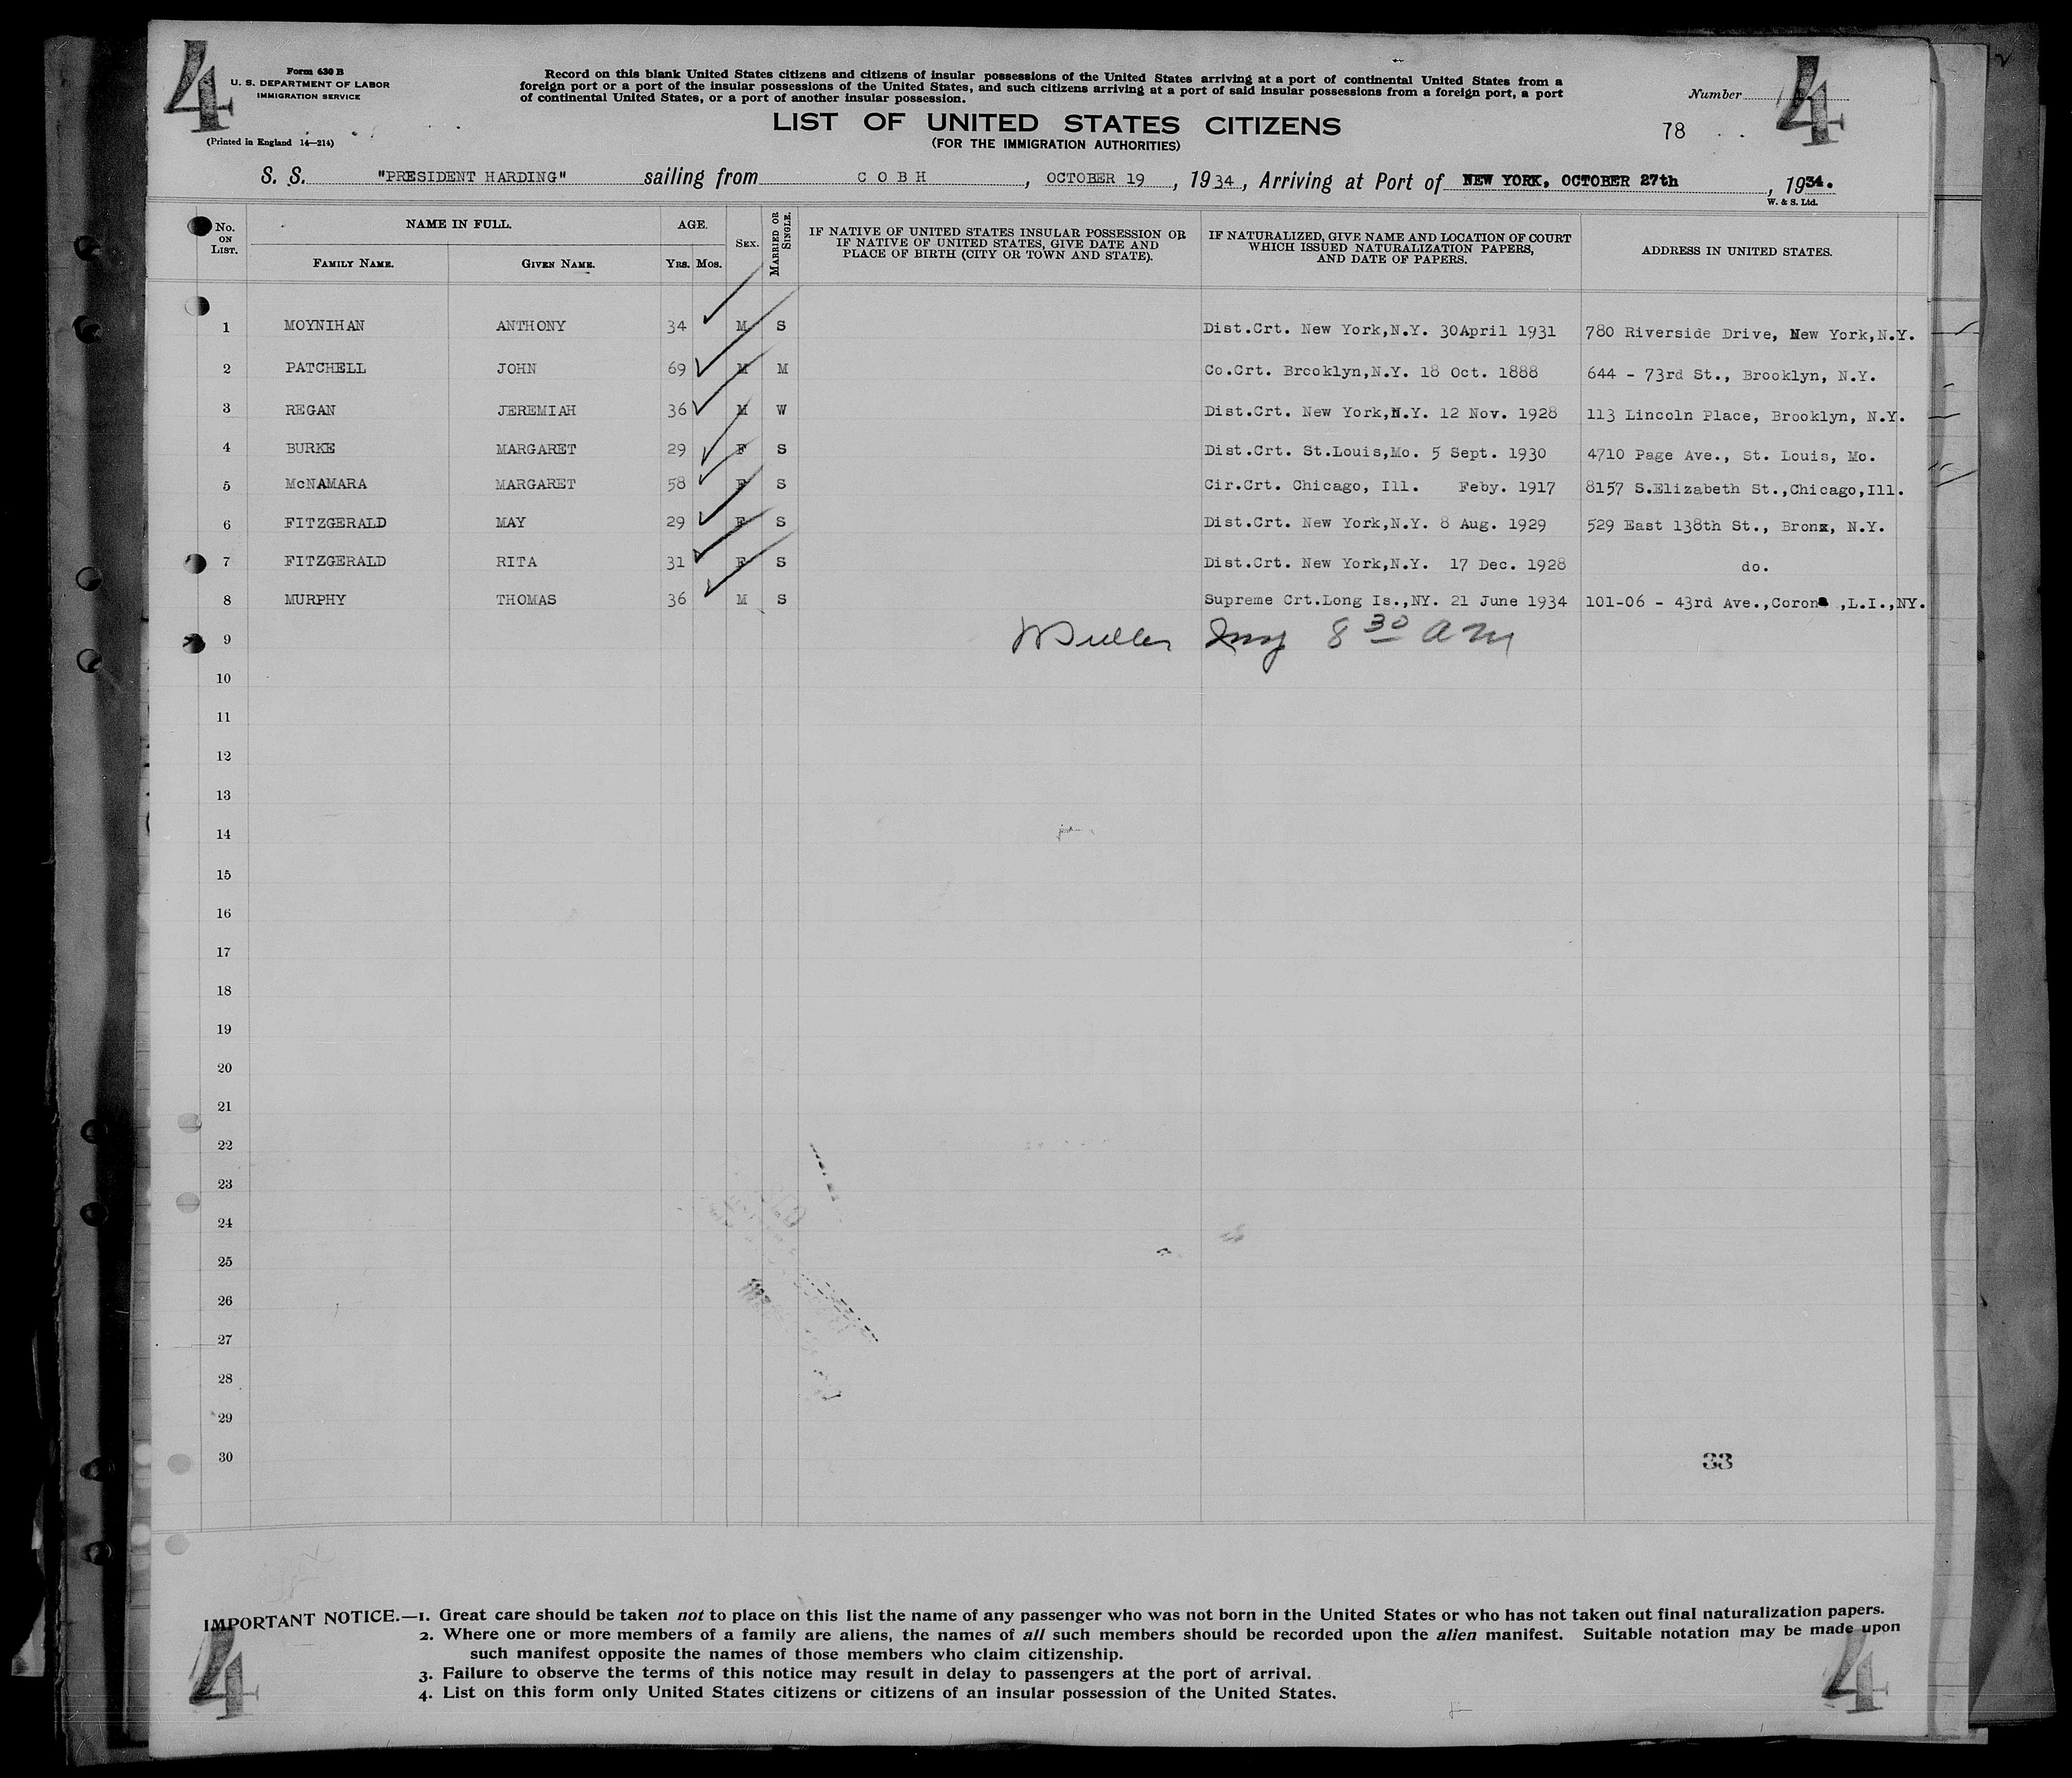 4
4
Form 630 B
U. S. DEPARTMENT OF LABOR
IMMIGRATION SERVICE
(Printed in England 14—214)
Record on this blank United States citizens and citizens of insular possessions of the United States arriving at a port of continental United States from a
foreign port or a port of the insular possessions of the United States, and such citizens arriving at a port of said insular possessions from a foreign port, a port
of continental United States, or a port of another insular possession.
Number
LIST OF UNITED STATES CITIZENS
78
(FOR THE IMMIGRATION AUTHORITIES)
S. S. "PRESIDENT HARDING" sailing from COBH, OCTOBER 19, 1934, Arriving at Port of NEW YORK, OCTOBER 27th, 1934.
W. & S. Ltd.
No. ON LIST. NAME IN FULL. AGE. SEX. MARRIED OR SINGLE. IF NATIVE OF UNITED STATES INSULAR POSSESSION OR IF NATIVE OF UNITED STATES, GIVE DATE AND PLACE OF BIRTH (CITY OR TOWN AND STATE). IF NATURALIZED, GIVE NAME AND LOCATION OF COURT WHICH ISSUED NATURALIZATION PAPERS, AND DATE OF PAPERS. ADDRESS IN UNITED STATES.
FAMILY NAME. GIVEN NAME. YRS. MOS.
1 MOYNIHAN ANTHONY 34 M S Dist.Crt. New York,N.Y. 30April 1931 780 Riverside Drive, New York,N.Y.
2 PATCHELL JOHN 69 M M Co.Crt. Brooklyn,N.Y. 18 Oct. 1888 644 - 73rd St., Brooklyn, N.Y.
3 REGAN JEREMIAH 36 M W Dist.Crt. New York,N.Y. 12 Nov. 1928 113 Lincoln Place, Brooklyn, N.Y.
4 BURKE MARGARET 29 F S Dist.Crt. St.Louis,Mo. 5 Sept. 1930 4710 Page Ave., St. Louis, Mo.
5 McNAMARA MARGARET 58 F S Cir.Crt. Chicago, Ill. Feby. 1917 8157 S.Elizabeth St.,Chicago,Ill.
6 FITZGERALD MAY 29 F S Dist.Crt. New York,N.Y. 8 Aug. 1929 529 East 138th St., Bronx, N.Y.
7 FITZGERALD RITA 31 F S Dist.Crt. New York,N.Y. 17 Dec. 1928 do.
8 MURPHY THOMAS 36 M S Supreme Crt.Long Is.,NY. 21 June 1934 101-06 - 43rd Ave.,Corona ,L.I.,NY.
9 8 30 AM
10
11
12
13
14
15
16
17
18
19
20
21
22
23
24
25
26
27
28
29
30 33
IMPORTANT NOTICE.—1. Great care should be taken not to place on this list the name of any passenger who was not born in the United States or who has not taken out final naturalization papers.
2. Where one or more members of a family are aliens, the names of all such members should be recorded upon the alien manifest. Suitable notation may be made upon
such manifest opposite the names of those members who claim citizenship.
3. Failure to observe the terms of this notice may result in delay to passengers at the port of arrival.
4. List on this form only United States citizens or citizens of an insular possession of the United States.
4
4